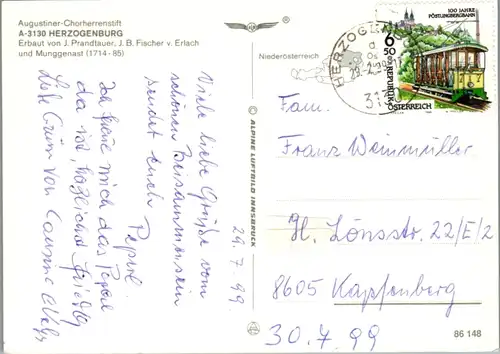 Augustiner-Chorherrenstift
A-3130 HERZOGENBURG
Erbaut von J. Prandtauer, J. B. Fischer v. Erlach
und Munggenast (1714-85)
Niederösterreich
100 JAHRE
PÖSTLINGBERGBAHN
6 50
REPUBLIK
ÖSTERREICH
HERZOG
29.7.99
Viele liebe Grüße vom
schönen Beisammensein
sendet euch
Pepi
Ich freue mich das Pepi
da ist, herzlichst Friedl
Liebe Grüße von
© ALPINE LUFTBILD INNSBRUCK
Fam.
Franz Weinmüller
H. Lönsstr. 22/E/2
8605 Kapfenberg
30.7.99
86 148